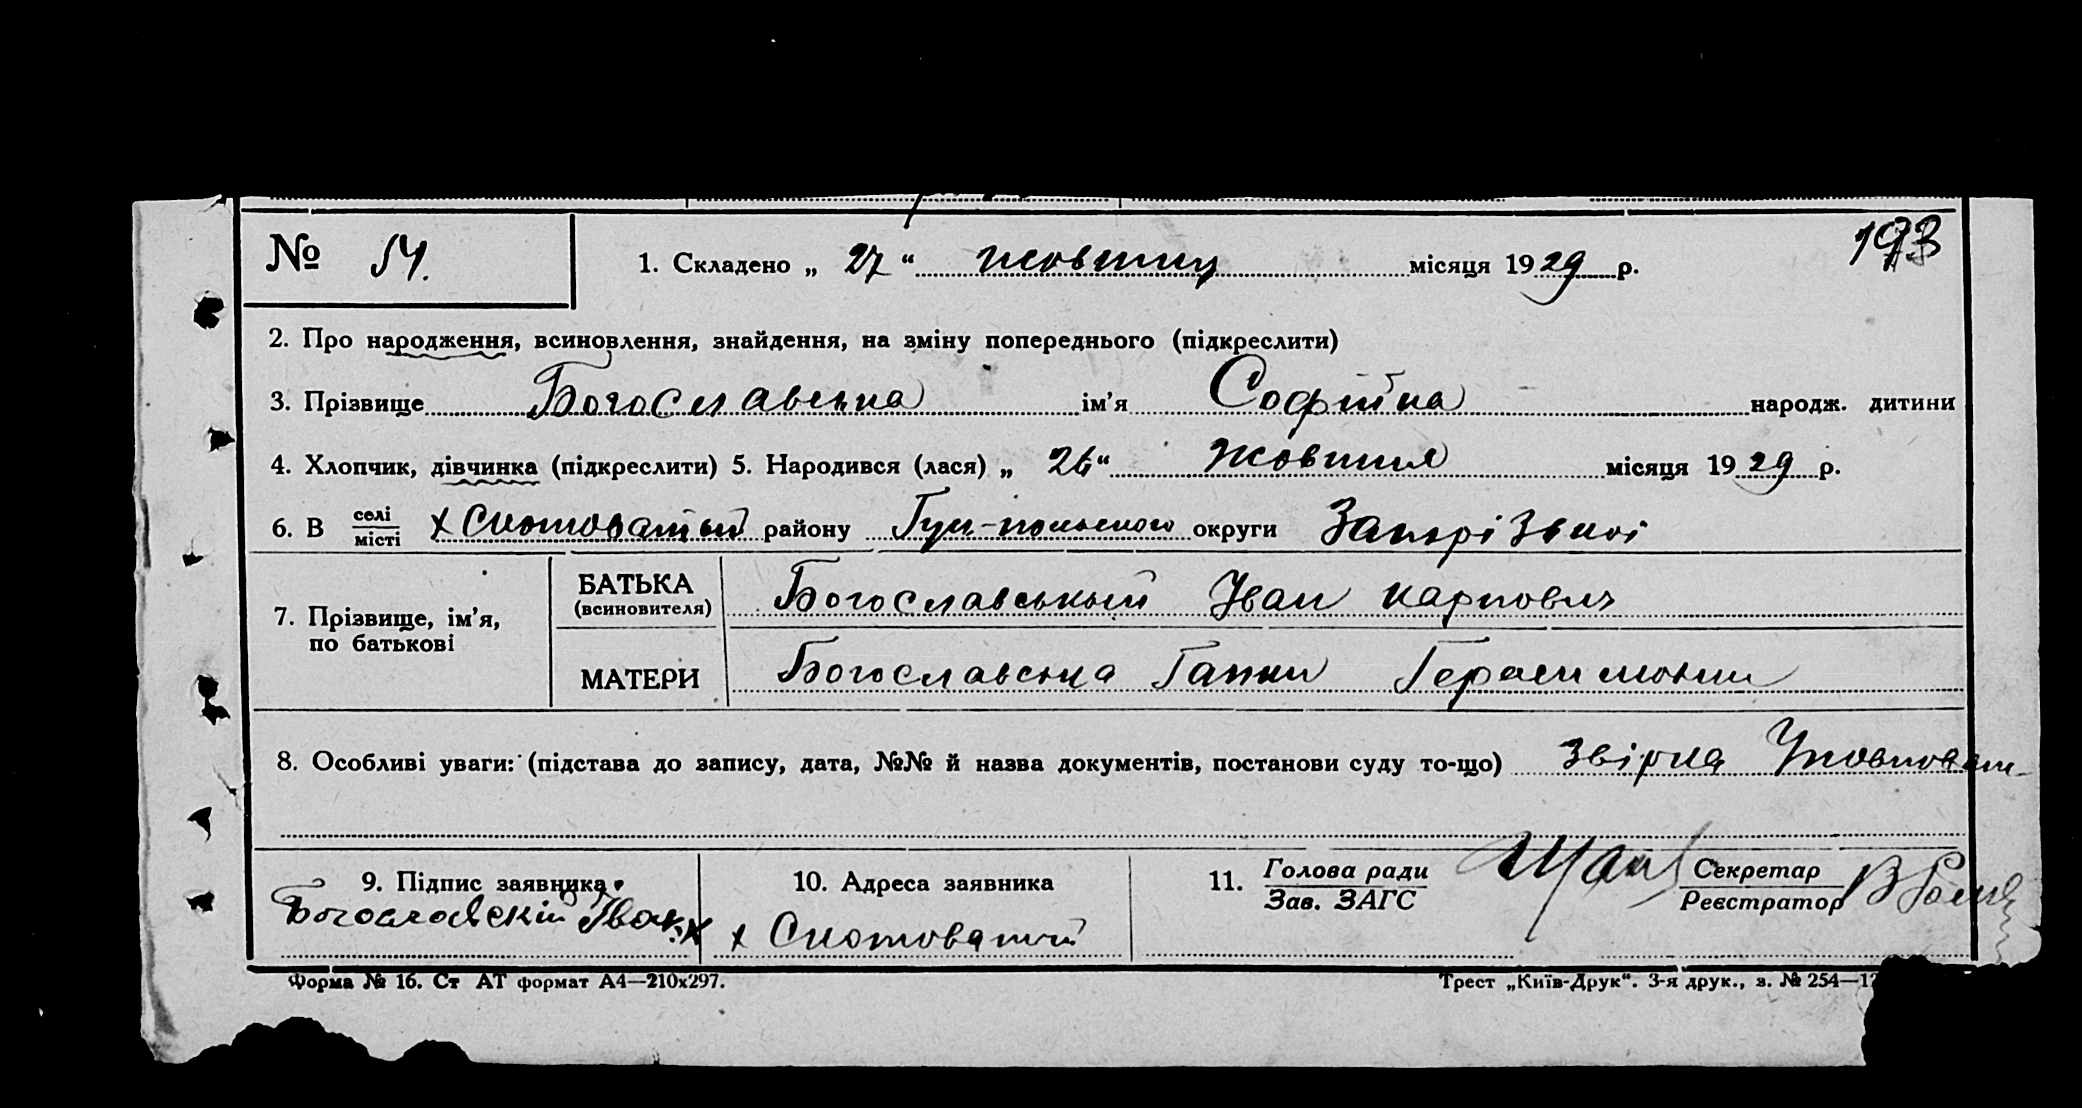 № 54. 1. Складено „ 27 “ жовтня місяця 1929 р. 193
2. Про народження, всиновлення, знайдення, на зміну попереднього (підкреслити)
3. Прізвище Богославська ім’я Софійка народж. дитини
4. Хлопчик, дівчинка (підкреслити) 5. Народився (лася) „ 26 “ жовтня місяця 1929 р.
6. В селі/місті х Скотоватый району Гул-польского округи Запорізької
7. Прізвище, ім’я, по батькові
БАТЬКА (всиновителя) Богославський Іван Карпович
МАТЕРИ Богославська Ганни Герасимовни
8. Особливі уваги: (підстава до запису, дата, №№ й назва документів, постанови суду то-що) Звірка
9. Підпис заявника 10. Адреса заявника 11. Голова ради/Зав. ЗАГС Секретар/Реєстратор
Богославскій Іван х Скотоватий
Форма № 16. Ст АТ формат А4—210х297. Трест „Київ-Друк“. 3-я друк., з. № 254—